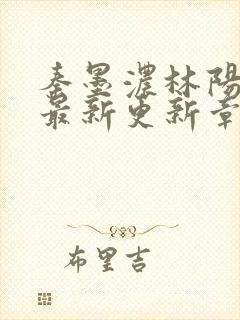 秦墨濃林陽
最新更新章
布里吉